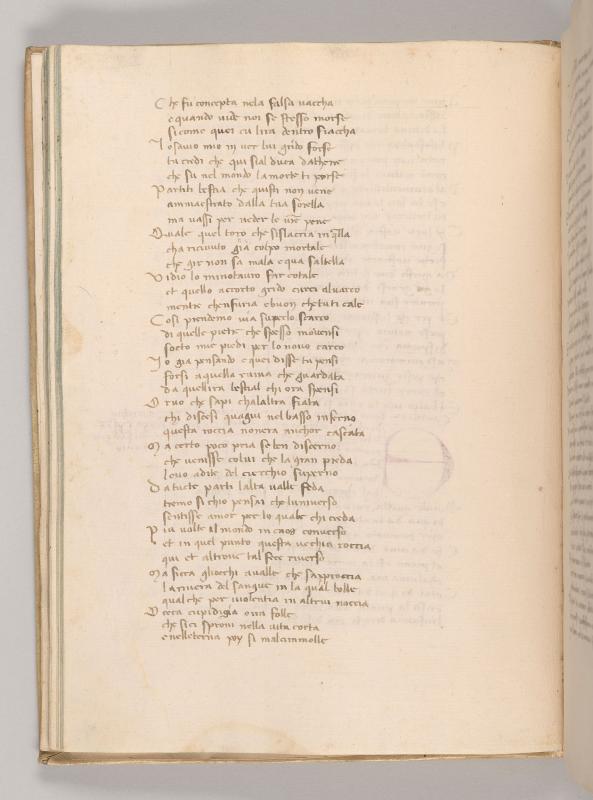 Che fu concepta nela falsa vaccha
e quando vide noi se stesso morse
si come quei cu lira dentro fiaccha
Lo savio mio in ver lui grido forse
tu credi che qui sia l duca dathene
che su nel mondo la morte ti porse
Partiti bestia che questi non vene
ammaestrato dalla tua sorella
ma vassi per veder le vre pene
Quale quel toro che si slaccia in qlla
cha ricivuto gia colpo mortale
che gir non sa ma la e qua saltella
Vidio lo minotauro far cotale
et quello accorto grido curri al varco
mentre chenfuria e buon che tuti cale
Cosi prendemo via su per lo scarco
di quelle pietre che spesso movensi
socto mie piedi per lo novo carco
Io gia pensando e quei disse tu pensi
forsi a quella ruina che guardata
da quellira bestial chi ora spensi
Or vuo che sapi cha laltra fiata
chi discesi qua giu nel basso inferno
questa roccia non era anchor cascata
Ma certo poco pria se ben discerno
che venisse colui che la gran preda
levo a dite del cierchio superno
Da tucte parti lalta valle feda
tremo si chio pensai che luniverso
sentisse amor per lo quale chi creda
Piu volte il mondo in caos converso
et in quel punto questa vechia roccia
qui et altrove tal fece riverso
Ma ficca gliocchi a valle che sapproccia
la rivera del sangue in la qual bolle
qual che per violentia in altrui noccia
O ceca cupidigia o ira folle
che si ci sproni nella vita corta
e nelleterna poy si mal cimmolle